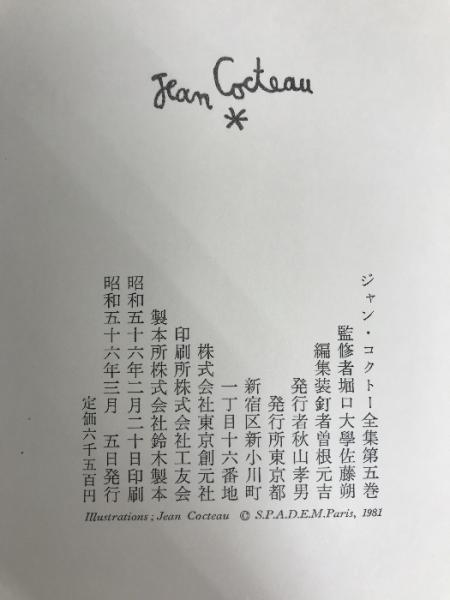 Jean Cocteau
*
ジャン・コクトー全集第五巻
監修者堀口大學佐藤朔
編集装釘者曽根元吉
発行者秋山孝男
発行所東京都
新宿区新小川町
一丁目十六番地
株式会社東京創元社
印刷所株式会社工友会
製本所株式会社鈴木製本
昭和五十六年二月二十日印刷
昭和五十六年三月 五日発行
定価六千五百円
Illustrations ; Jean Cocteau © S.P.A.D.E.M.Paris, 1981